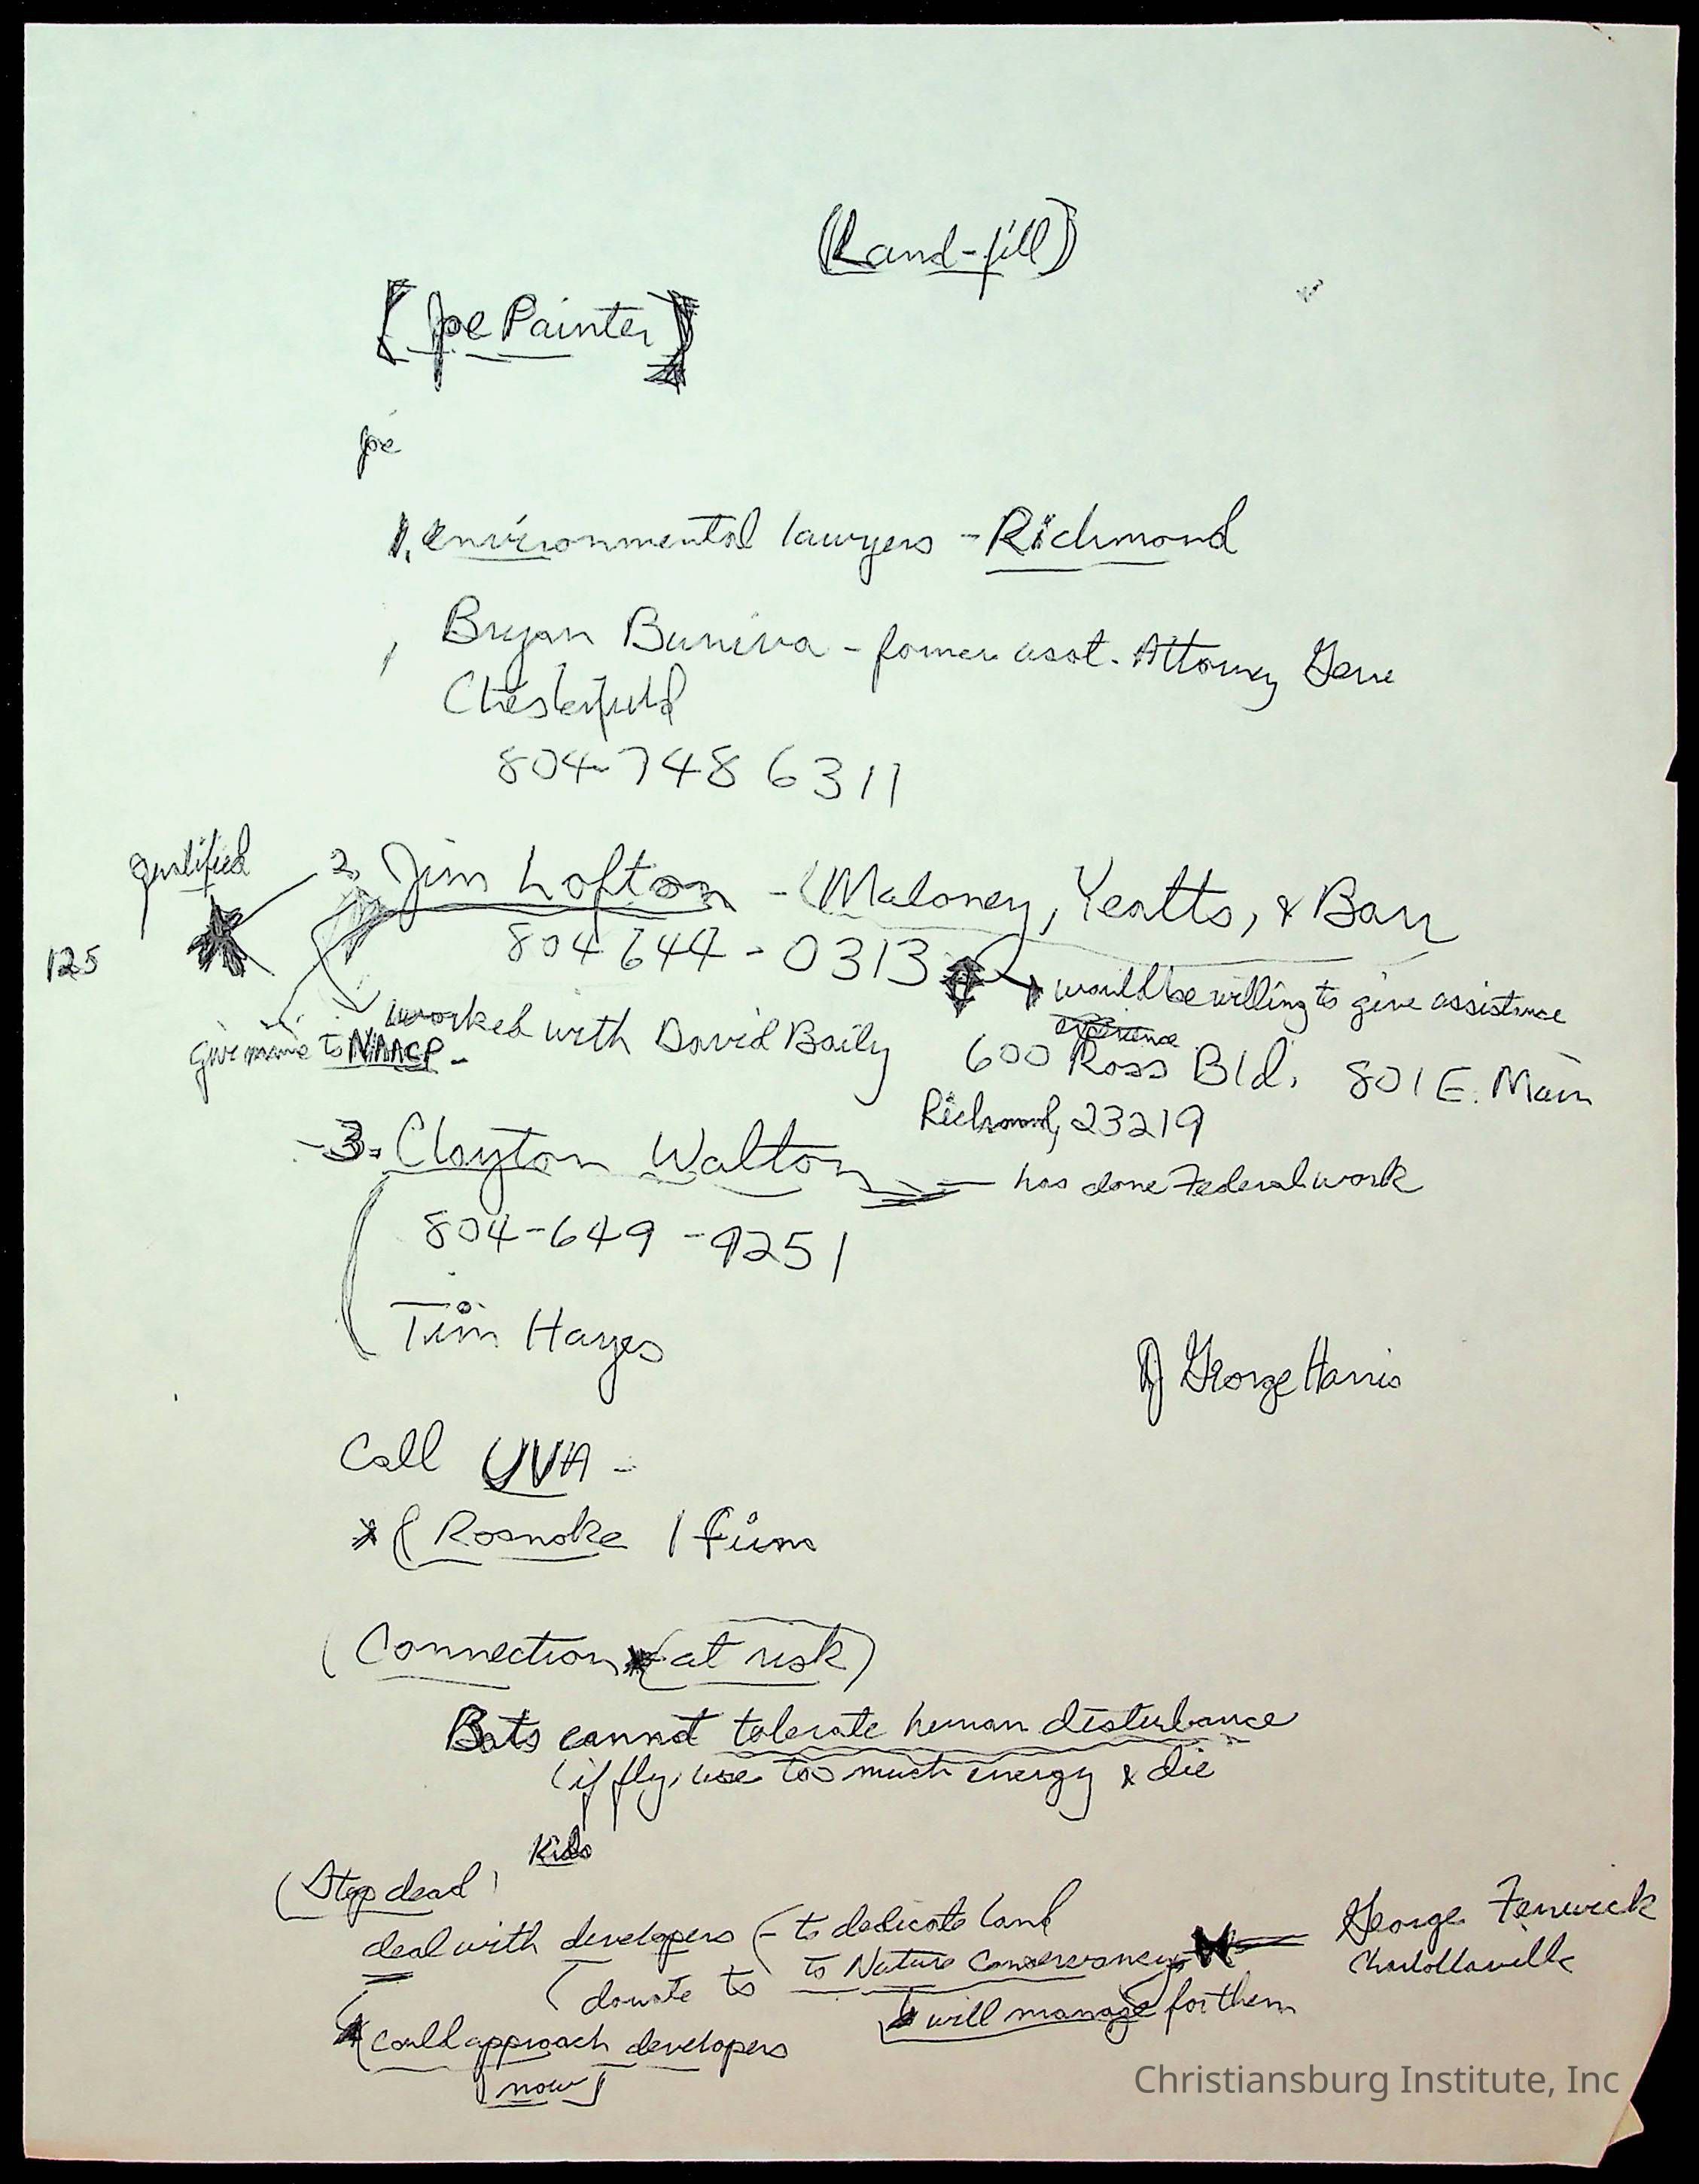 (Land-fill)
[Joe Painter]
Joe
1. environmental lawyers - Richmond
Bryan Buniva - former asst. Attorney Gene
Chesterfield
804-748 6311
qualified
2. Jim Lofton - (Maloney, Yeatts, & Barr
804 644-0313
125
would be willing to give assistance
experience
worked with David Baily
give name to NAACP -
600 Ross Bld. 801 E. Main
Richmond, 23219
3. Clayton Walton
has done Federal work
804-649-9251
Tim Hayes
George Harris
Call UVA -
* (Roanoke | firm
(Connection (at risk)
Bats cannot tolerate human disturbance
(if fly, use too much energy & die
Kids
(Stop dead)
deal with developers (- to dedicate land
George Fenwick
Charlottesville
(donate to to Nature Conservancy
will manage for them
(could approach developers
[now]
Christiansburg Institute, Inc